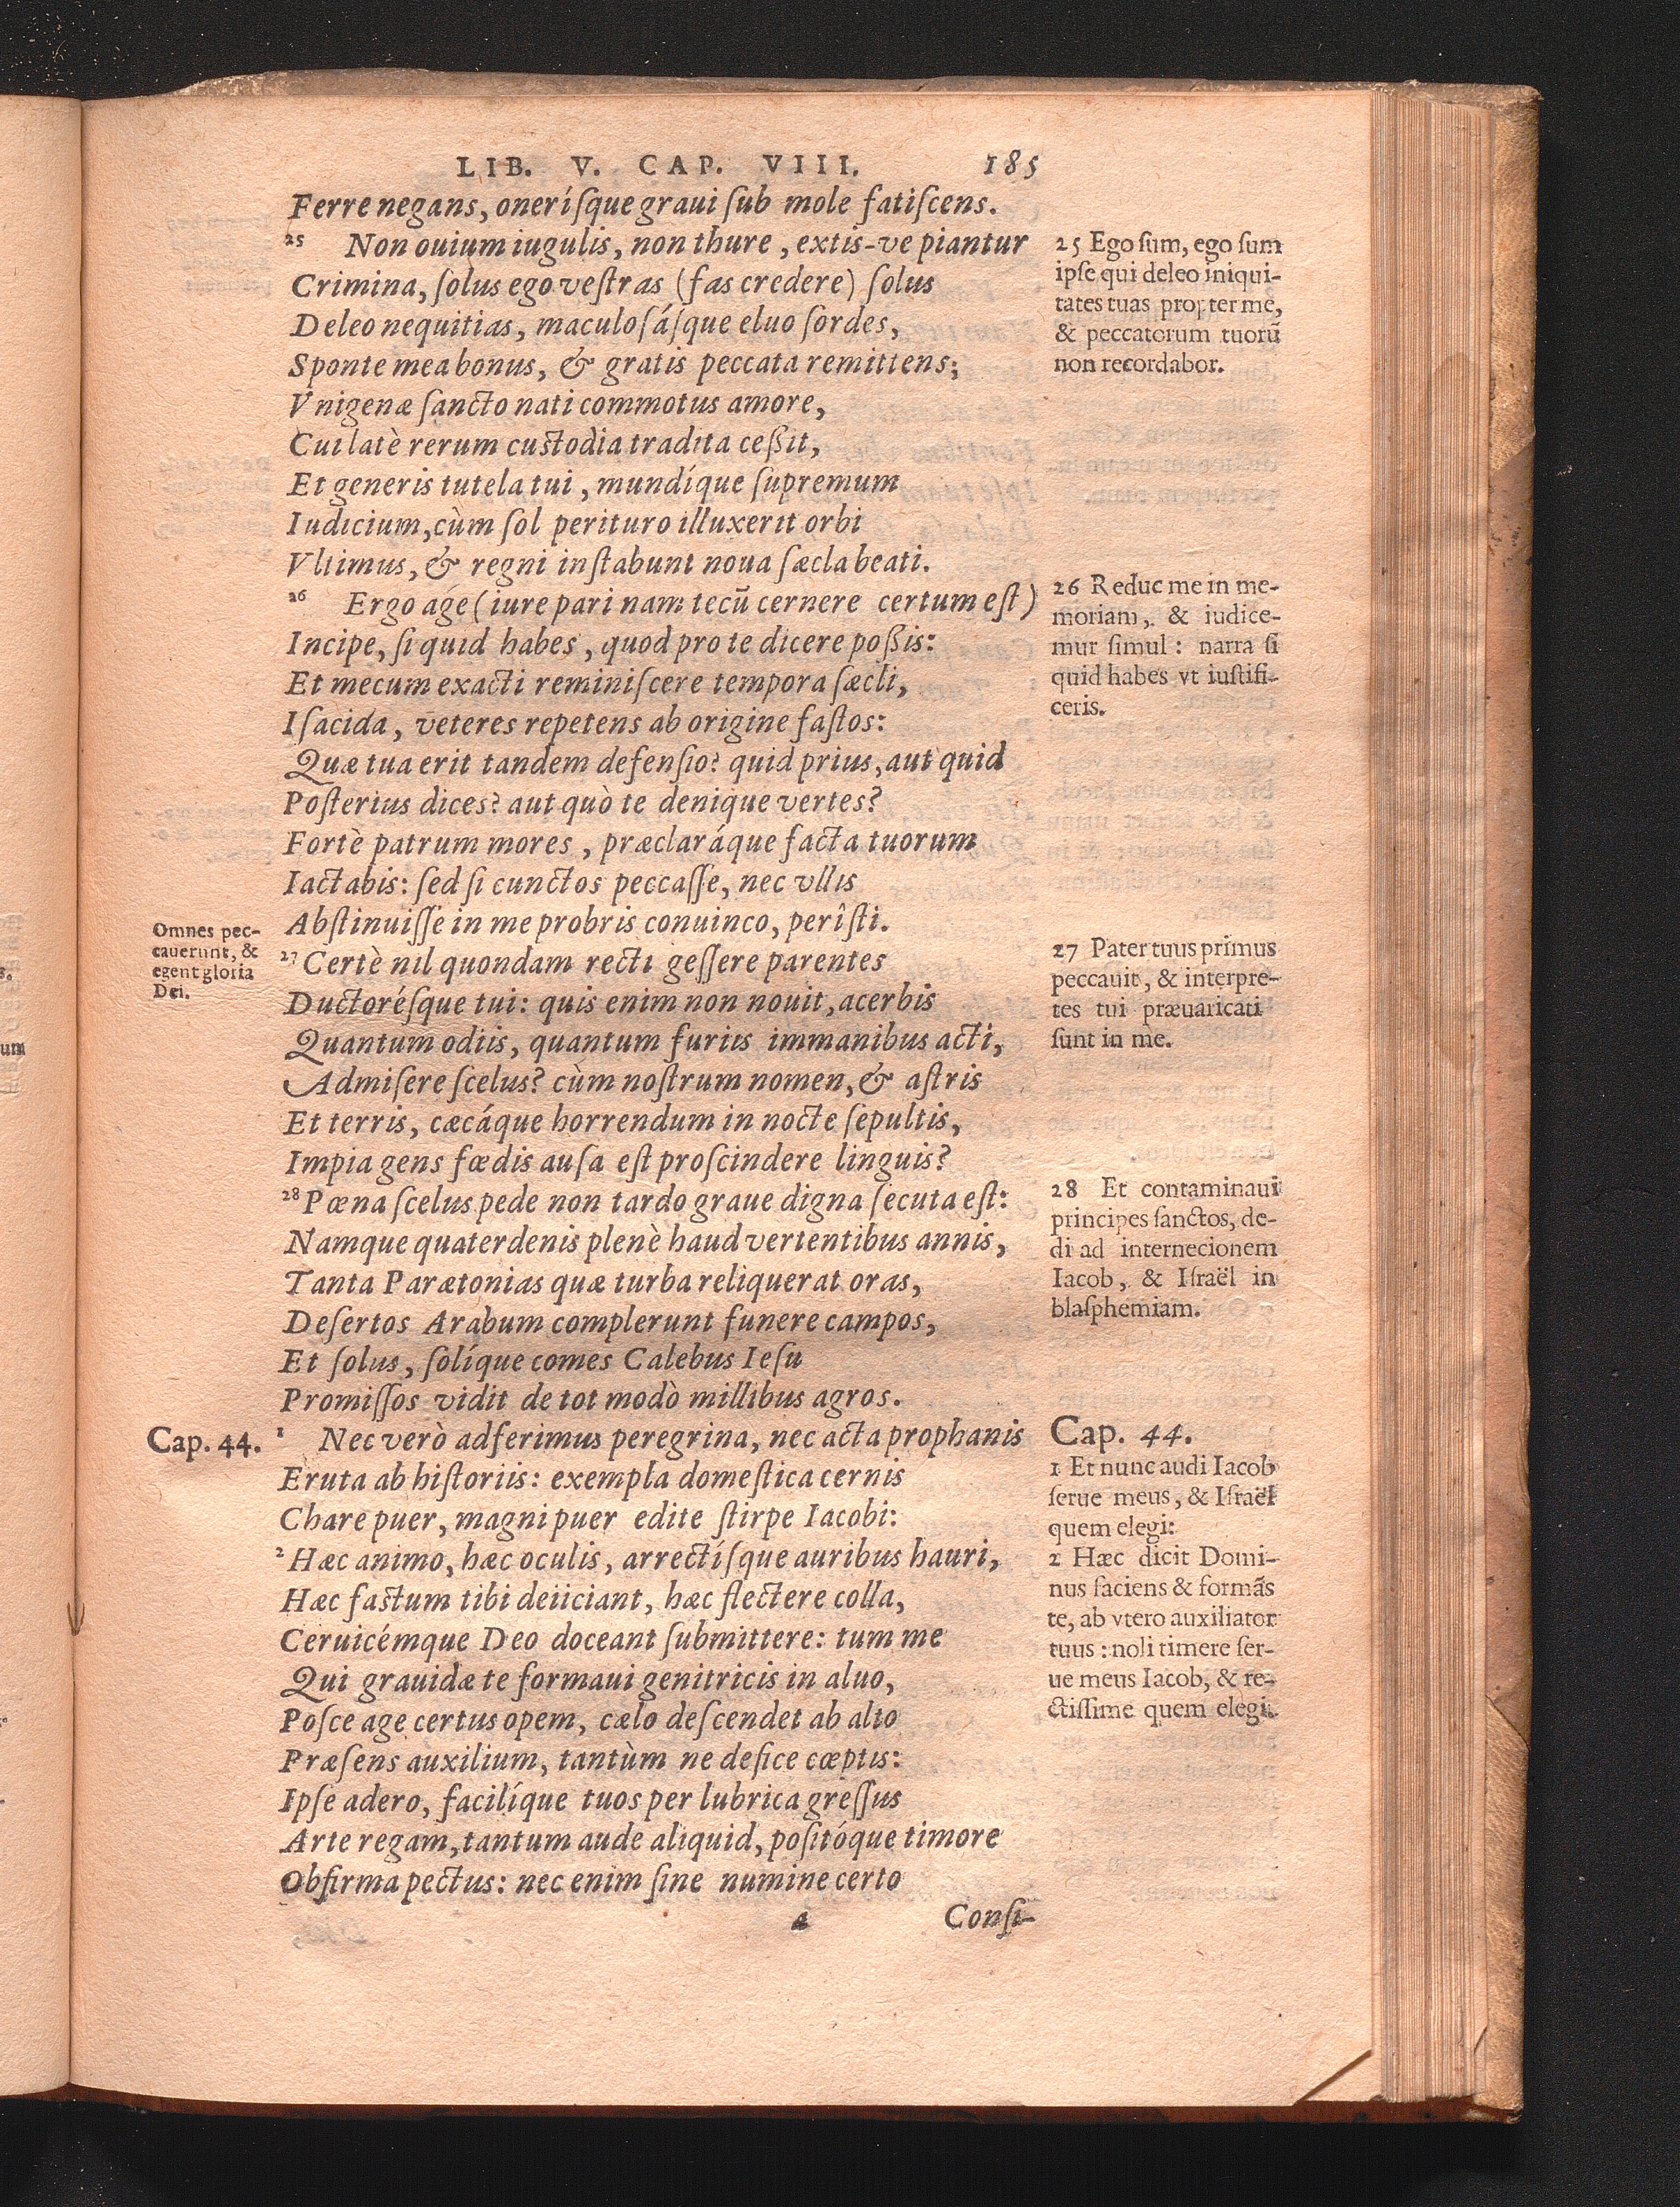 LIB. V. CAP. VIII. 185
Ferre negans, oneríſque graui ſub mole fatiſcens.
25 Non ouium iugulis, non thure, extis-ve piantur
Crimina, ſolus ego veſtras (fas credere) ſolus
Deleo nequitias, maculoſáſque eluo ſordes,
Sponte mea bonus, & gratis peccata remittens;
Vnigenæ ſancto nati commotus amore,
Cui latè rerum cuſtodia tradita ceßit,
Et generis tutela tui, mundíque ſupremum
Iudicium, cùm ſol perituro illuxerit orbi
Vltimus, & regni inſtabunt noua ſæcla beati.
26 Ergo age (iure pari nam tecũ cernere certum eſt)
Incipe, ſi quid habes, quod pro te dicere poßis:
Et mecum exacti reminiſcere tempora ſæcli,
Iſacida, veteres repetens ab origine faſtos:
Quæ tua erit tandem defenſio? quid prius, aut quid
Poſterius dices? aut quò te denique vertes?
Fortè patrum mores, præclaráque facta tuorum
Iactabis: ſed ſi cunctos peccaſſe, nec vllis
Abſtinuiſſe in me probris conuinco, perîſti.
27 Certè nil quondam recti geſſere parentes
Ductoréſque tui: quis enim non nouit, acerbis
Quantum odiis, quantum furiis immanibus acti,
Admiſere ſcelus? cùm noſtrum nomen, & aſtris
Et terris, cæcáque horrendum in nocte ſepultis,
Impia gens fœdis auſa eſt proſcindere linguis?
28 Pœna ſcelus pede non tardo graue digna ſecuta eſt:
Namque quaterdenis plenè haud vertentibus annis,
Tanta Parætonias quæ turba reliquerat oras,
Deſertos Arabum complerunt funere campos,
Et ſolus, ſolíque comes Calebus Ieſu
Promiſſos vidit de tot modò millibus agros.
1 Nec verò adferimus peregrina, nec acta prophanis
Eruta ab hiſtoriis: exempla domeſtica cernis
Chare puer, magni puer edite ſtirpe Iacobi:
2 Hæc animo, hæc oculis, arrectíſque auribus hauri,
Hæc faſtum tibi deiiciant, hæc flectere colla,
Ceruicémque Deo doceant ſubmittere: tum me
Qui grauidæ te formaui genitricis in aluo,
Poſce age certus opem, cælo deſcendet ab alto
Præſens auxilium, tantùm ne defice cœptis:
Ipſe adero, facilíque tuos per lubrica greſſus
Arte regam, tantum aude aliquid, poſitóque timore
Obfirma pectus: nec enim ſine numine certo
a Conſi-
Omnes pec-
cauerunt, &
egent gloria
Dei.
Cap. 44.
25 Ego ſum, ego ſum
ipſe qui deleo iniqui-
tates tuas propter me,
& peccatorum tuorũ
non recordabor.
26 Reduc me in me-
moriam, & iudice-
mur ſimul: narra ſi
quid habes vt iuſtifi-
ceris.
27 Pater tuus primus
peccauit, & interpre-
tes tui præuaricati
ſunt in me.
28 Et contaminaui
principes ſanctos, de-
di ad internecionem
Iacob, & Iſraël in
blaſphemiam.
Cap. 44.
1 Et nunc audi Iacob
ſerue meus, & Iſraël
quem elegi:
2 Hæc dicit Domi-
nus faciens & formãs
te, ab vtero auxiliator
tuus: noli timere ſer-
ue meus Iacob, & re-
ctiſſime quem elegi.